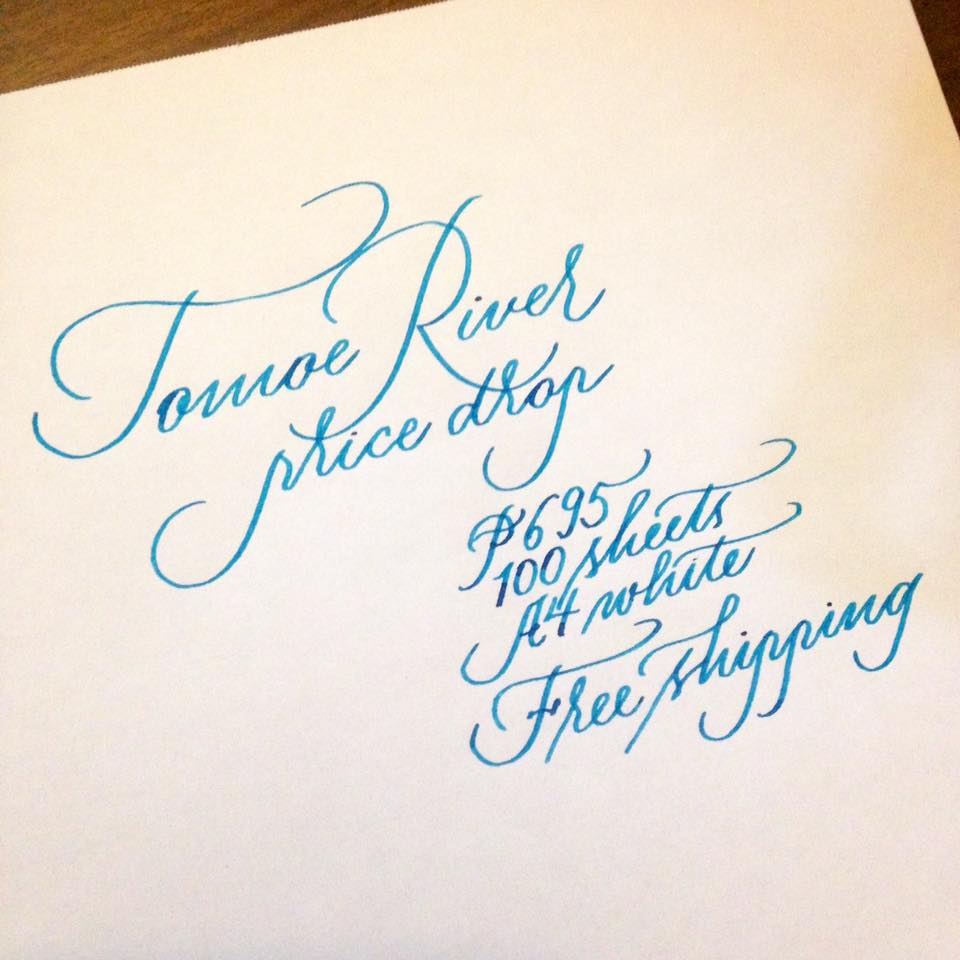 Tomoe River
price drop
₱695
100 sheets
A4 white
Free shipping